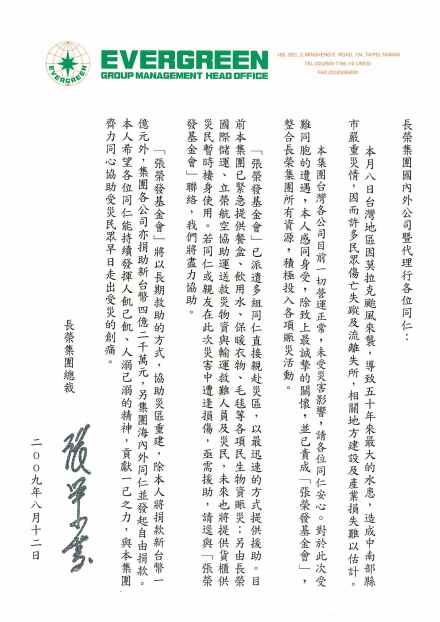 EVERGREEN
GROUP MANAGEMENT HEAD OFFICE
166, SEC. 2 MINSHENG E. ROAD, 104, TAIPEI,TAIWAN
TEL:(02)2505-7766 (10 LINES)
FAX:(02)
長榮集團國內外公司暨代理行各位同仁：
本月八日台灣地區因莫拉克颱風來襲，導致五十年來最大的水患，造成中南部縣
市嚴重災情，因而許多民眾傷亡失蹤及流離失所，相關地方建設及產業損失難以估計。
本集團台灣各公司目前一切營運正常，未受災害影響，請各位同仁安心。對於此次受
難同胞的遭遇，本人感同身受，除致上最誠摯的關懷，並已責成「張榮發基金會」，
整合長榮集團所有資源，積極投入各項賑災活動。
「張榮發基金會」已派遣多組同仁直接親赴災區，以最迅速的方式提供援助。目
前本集團已緊急提供餐盒、飲用水、保暖衣物、毛毯等各項民生物資賑災；另由長榮
國際儲運、立榮航空協助運送救災物資與輸運救難人員及災民，未來也將提供貨櫃供
災民暫時棲身使用。若同仁或親友在此次災害中遭逢損傷，亟需援助，請逕與「張榮
發基金會」聯絡，我們將盡力協助。
「張榮發基金會」將以長期救助的方式，協助災區重建，除本人將捐款新台幣一
億元外，集團各公司亦捐助新台幣四億二千萬元，另集團海內外同仁並發起自由捐款。
本人希望各位同仁能持續發揮人飢己飢、人溺己溺的精神，貢獻一己之力，與本集團
齊力同心協助受災民眾早日走出受災的創痛。
長榮集團總裁
張榮發
二〇〇九年八月十二日